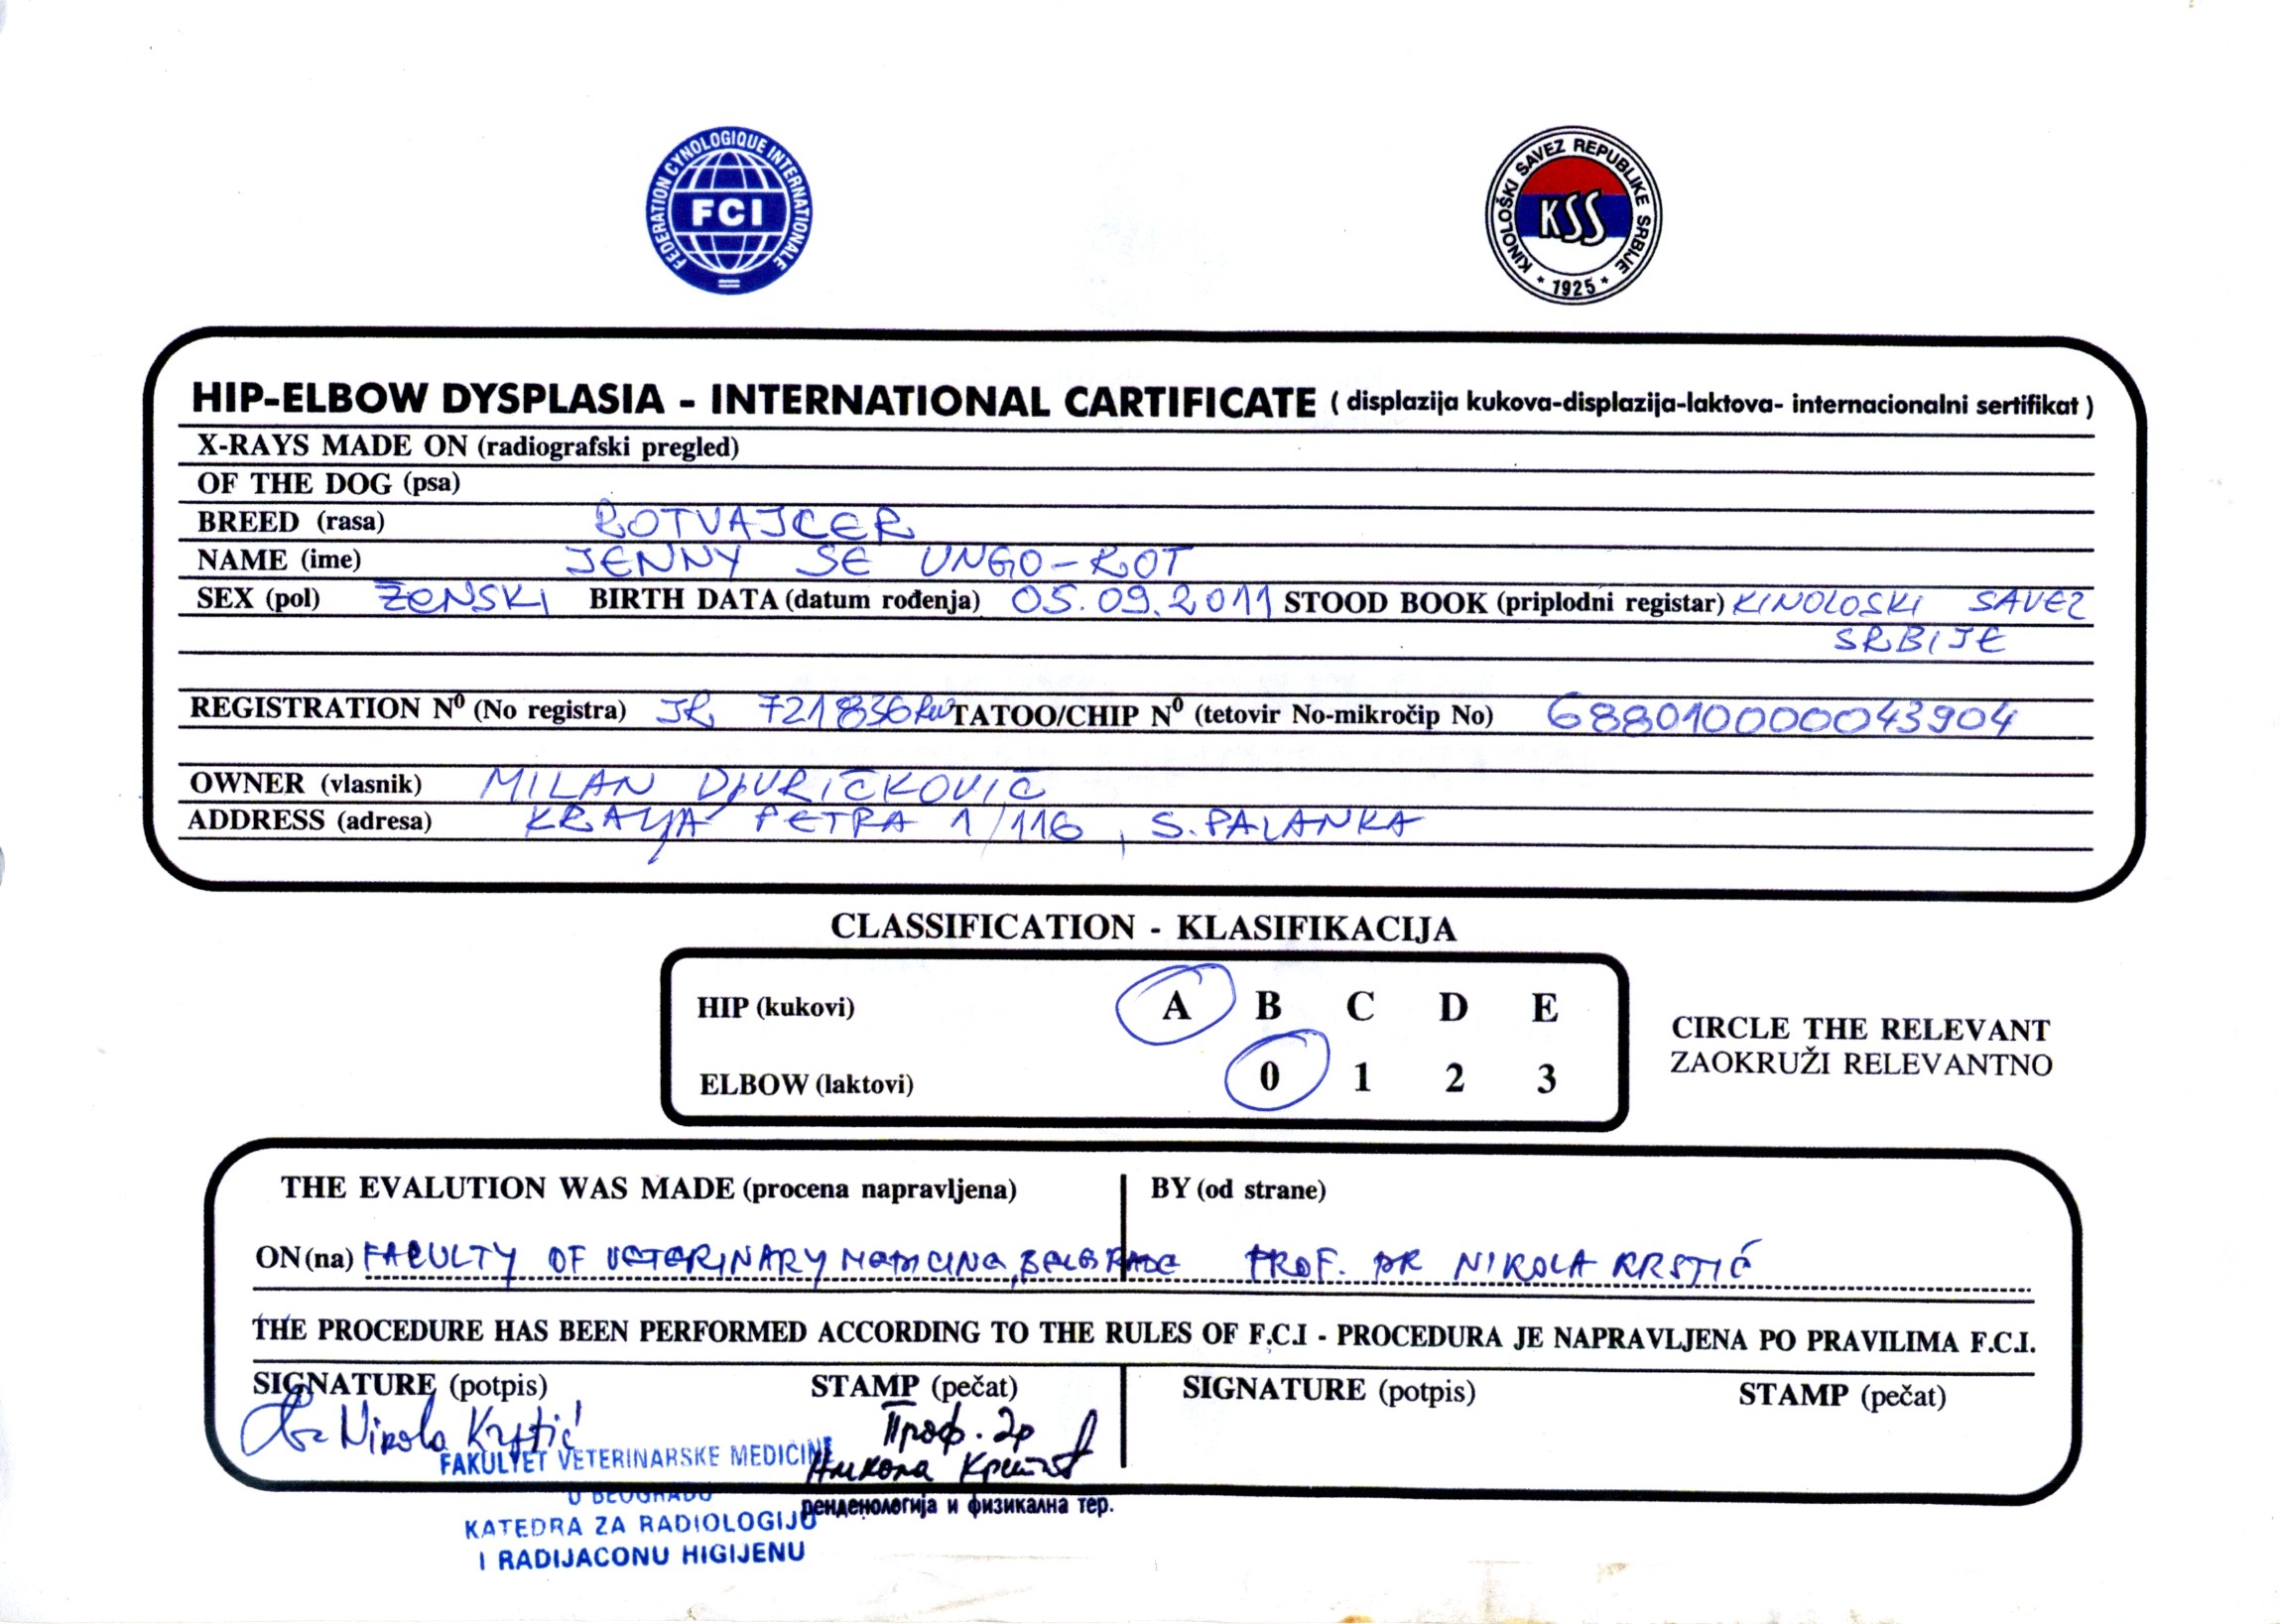 FEDERATION CYNOLOGIQUE INTERNATIONALE
FCI
KINOLOŠKI SAVEZ REPUBLIKE SRBIJE
KSS
* 1925 *
HIP-ELBOW DYSPLASIA - INTERNATIONAL CARTIFICATE ( displazija kukova-displazija-laktova- internacionalni sertifikat )
X-RAYS MADE ON (radiografski pregled)
OF THE DOG (psa)
BREED (rasa) ROTVAJCER
NAME (ime) JENNY SE UNGO-ROT
SEX (pol) ŽENSKI BIRTH DATA (datum rođenja) 05.09.2011 STOOD BOOK (priplodni registar) KINOLOSKI SAVEZ
SRBIJE
REGISTRATION Nº (No registra) JR 721836 Rw TATOO/CHIP Nº (tetovir No-mikročip No) 688010000043904
OWNER (vlasnik) MILAN DJURIČKOVIČ
ADDRESS (adresa) KRALJA PETRA 1/116, S. PALANKA
CLASSIFICATION - KLASIFIKACIJA
HIP (kukovi) A B C D E
ELBOW (laktovi) 0 1 2 3
CIRCLE THE RELEVANT
ZAOKRUŽI RELEVANTNO
THE EVALUTION WAS MADE (procena napravljena) BY (od strane)
ON (na) FACULTY OF VETERINARY MEDICINA, BELGRADE PROF. DR NIKOLA KRSTIĆ
THE PROCEDURE HAS BEEN PERFORMED ACCORDING TO THE RULES OF F.C.I - PROCEDURA JE NAPRAVLJENA PO PRAVILIMA F.C.I.
SIGNATURE (potpis) STAMP (pečat) SIGNATURE (potpis) STAMP (pečat)
Nikola Krstić
Проф. др
Никола Крстић
FAKULTET VETERINARSKE MEDICINE
U BEOGRADU
ренденологија и физикална тер.
KATEDRA ZA RADIOLOGIJU
I RADIJACONU HIGIJENU